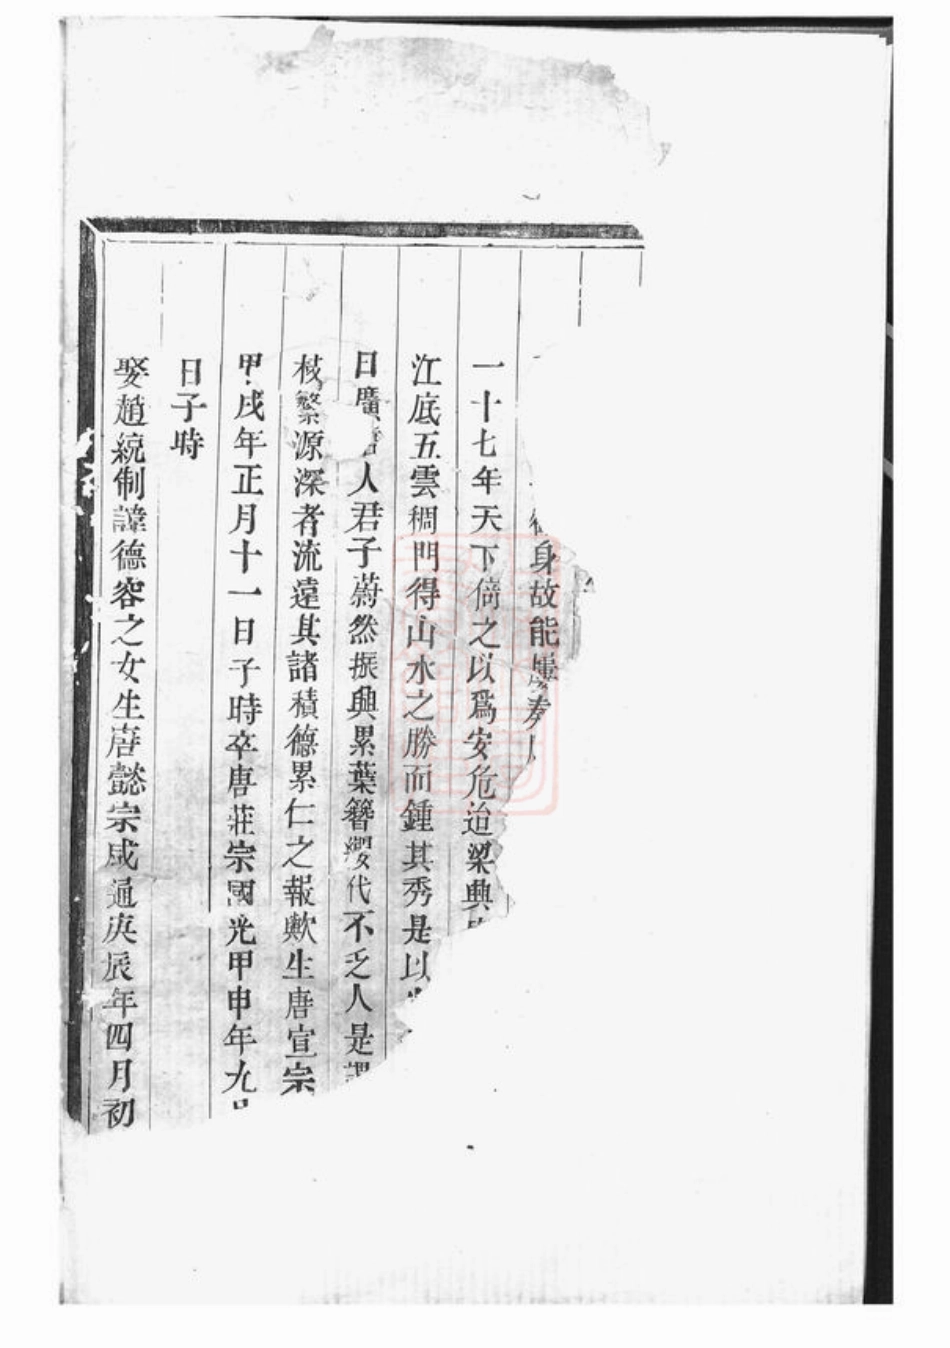 身故能屢奏
一十七年天下倚之以爲安危迨梁興
江底五雲稠門得山水之勝而鍾其秀是以
日廣人君子蔚然振興累葉簪纓代不乏人是
枝繁源深者流遠其諸積德累仁之報歟生唐宣宗
甲戌年正月十一日子時卒唐莊宗國光甲申年九
日子時
娶趙統制諱德容之女生唐懿宗咸通庚辰年四月初